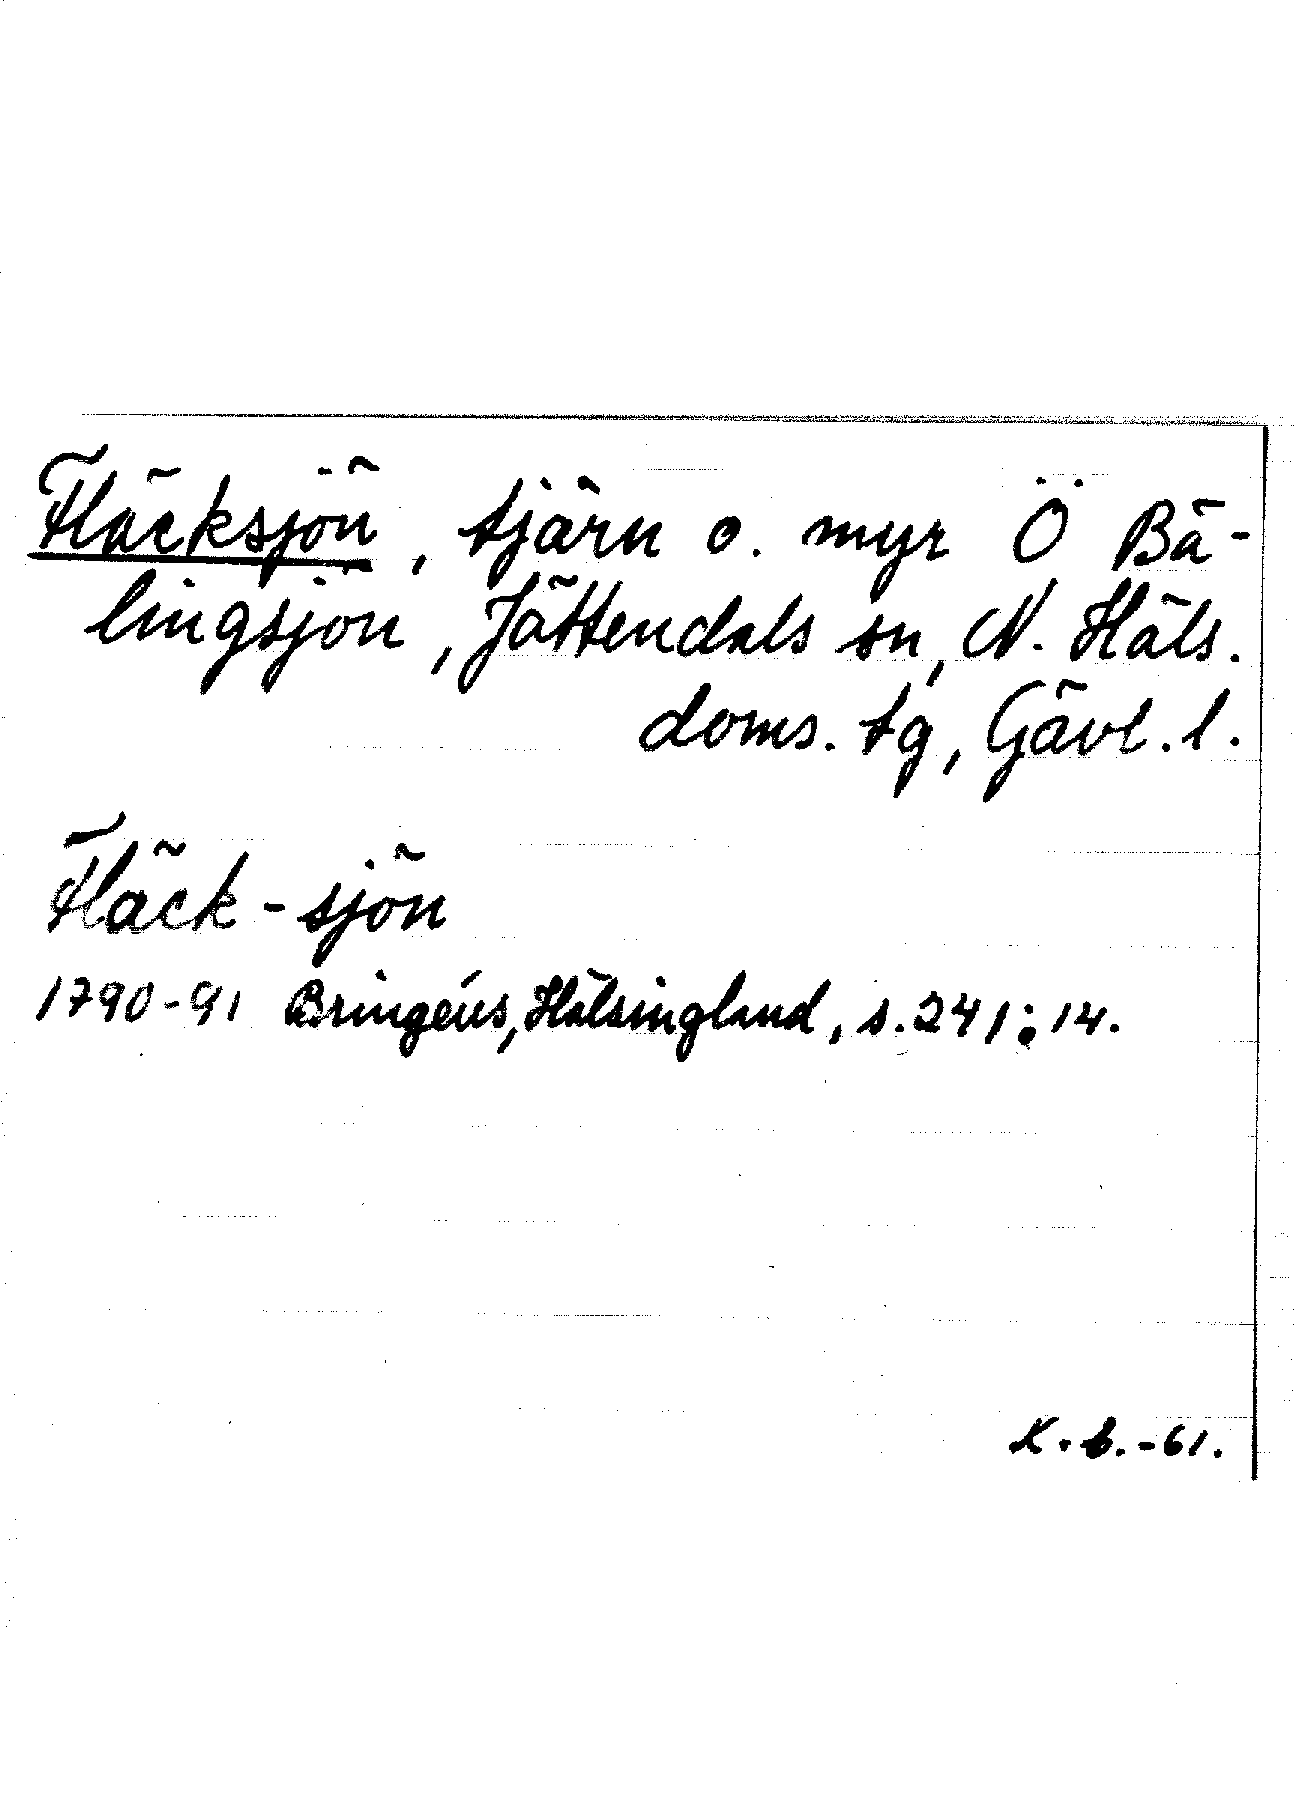 Fläcksjön, tjärn o. myr Ö Bä-
lingsjön, Jättendals sn, N. Häls.
doms. tg, Gävl. l.
Fläck-sjön
1790-91 Bringéus, Hälsingland, s. 241:14.
K.B.-61.